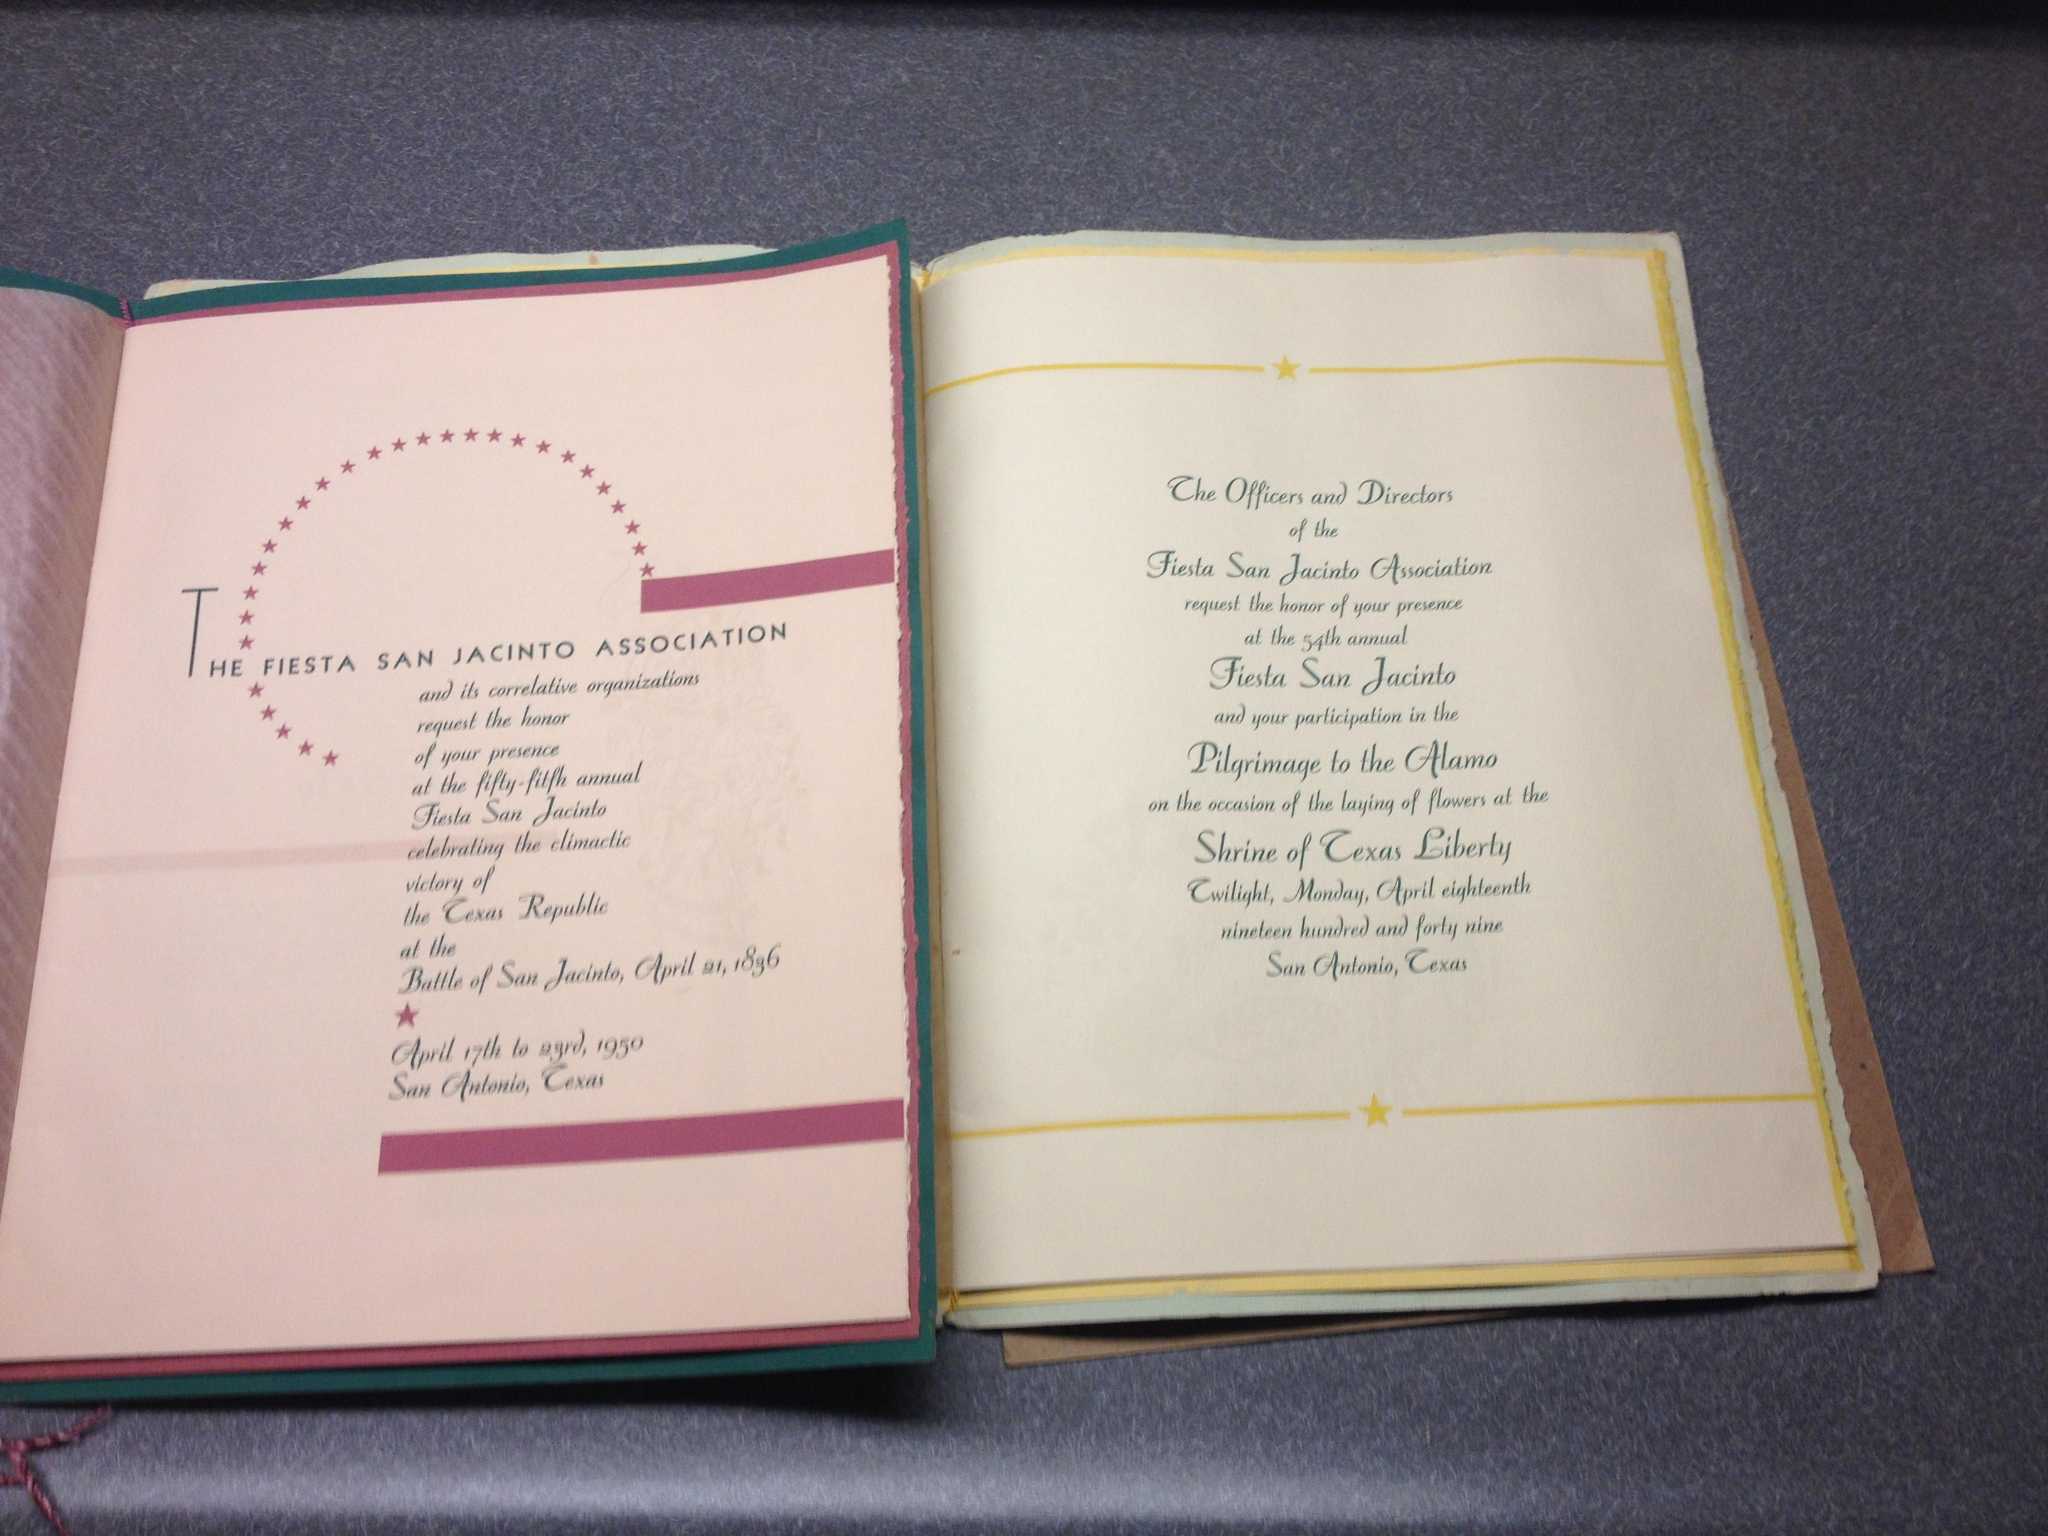 THE FIESTA SAN JACINTO ASSOCIATION
and its correlative organizations
request the honor
of your presence
at the fifty-fitfh annual
Fiesta San Jacinto
celebrating the climactic
victory of
the Texas Republic
at the
Battle of San Jacinto, April 21, 1836
April 17th to 23rd, 1950
San Antonio, Texas
The Officers and Directors
of the
Fiesta San Jacinto Association
request the honor of your presence
at the 54th annual
Fiesta San Jacinto
and your participation in the
Pilgrimage to the Alamo
on the occasion of the laying of flowers at the
Shrine of Texas Liberty
Twilight, Monday, April eighteenth
nineteen hundred and forty nine
San Antonio, Texas